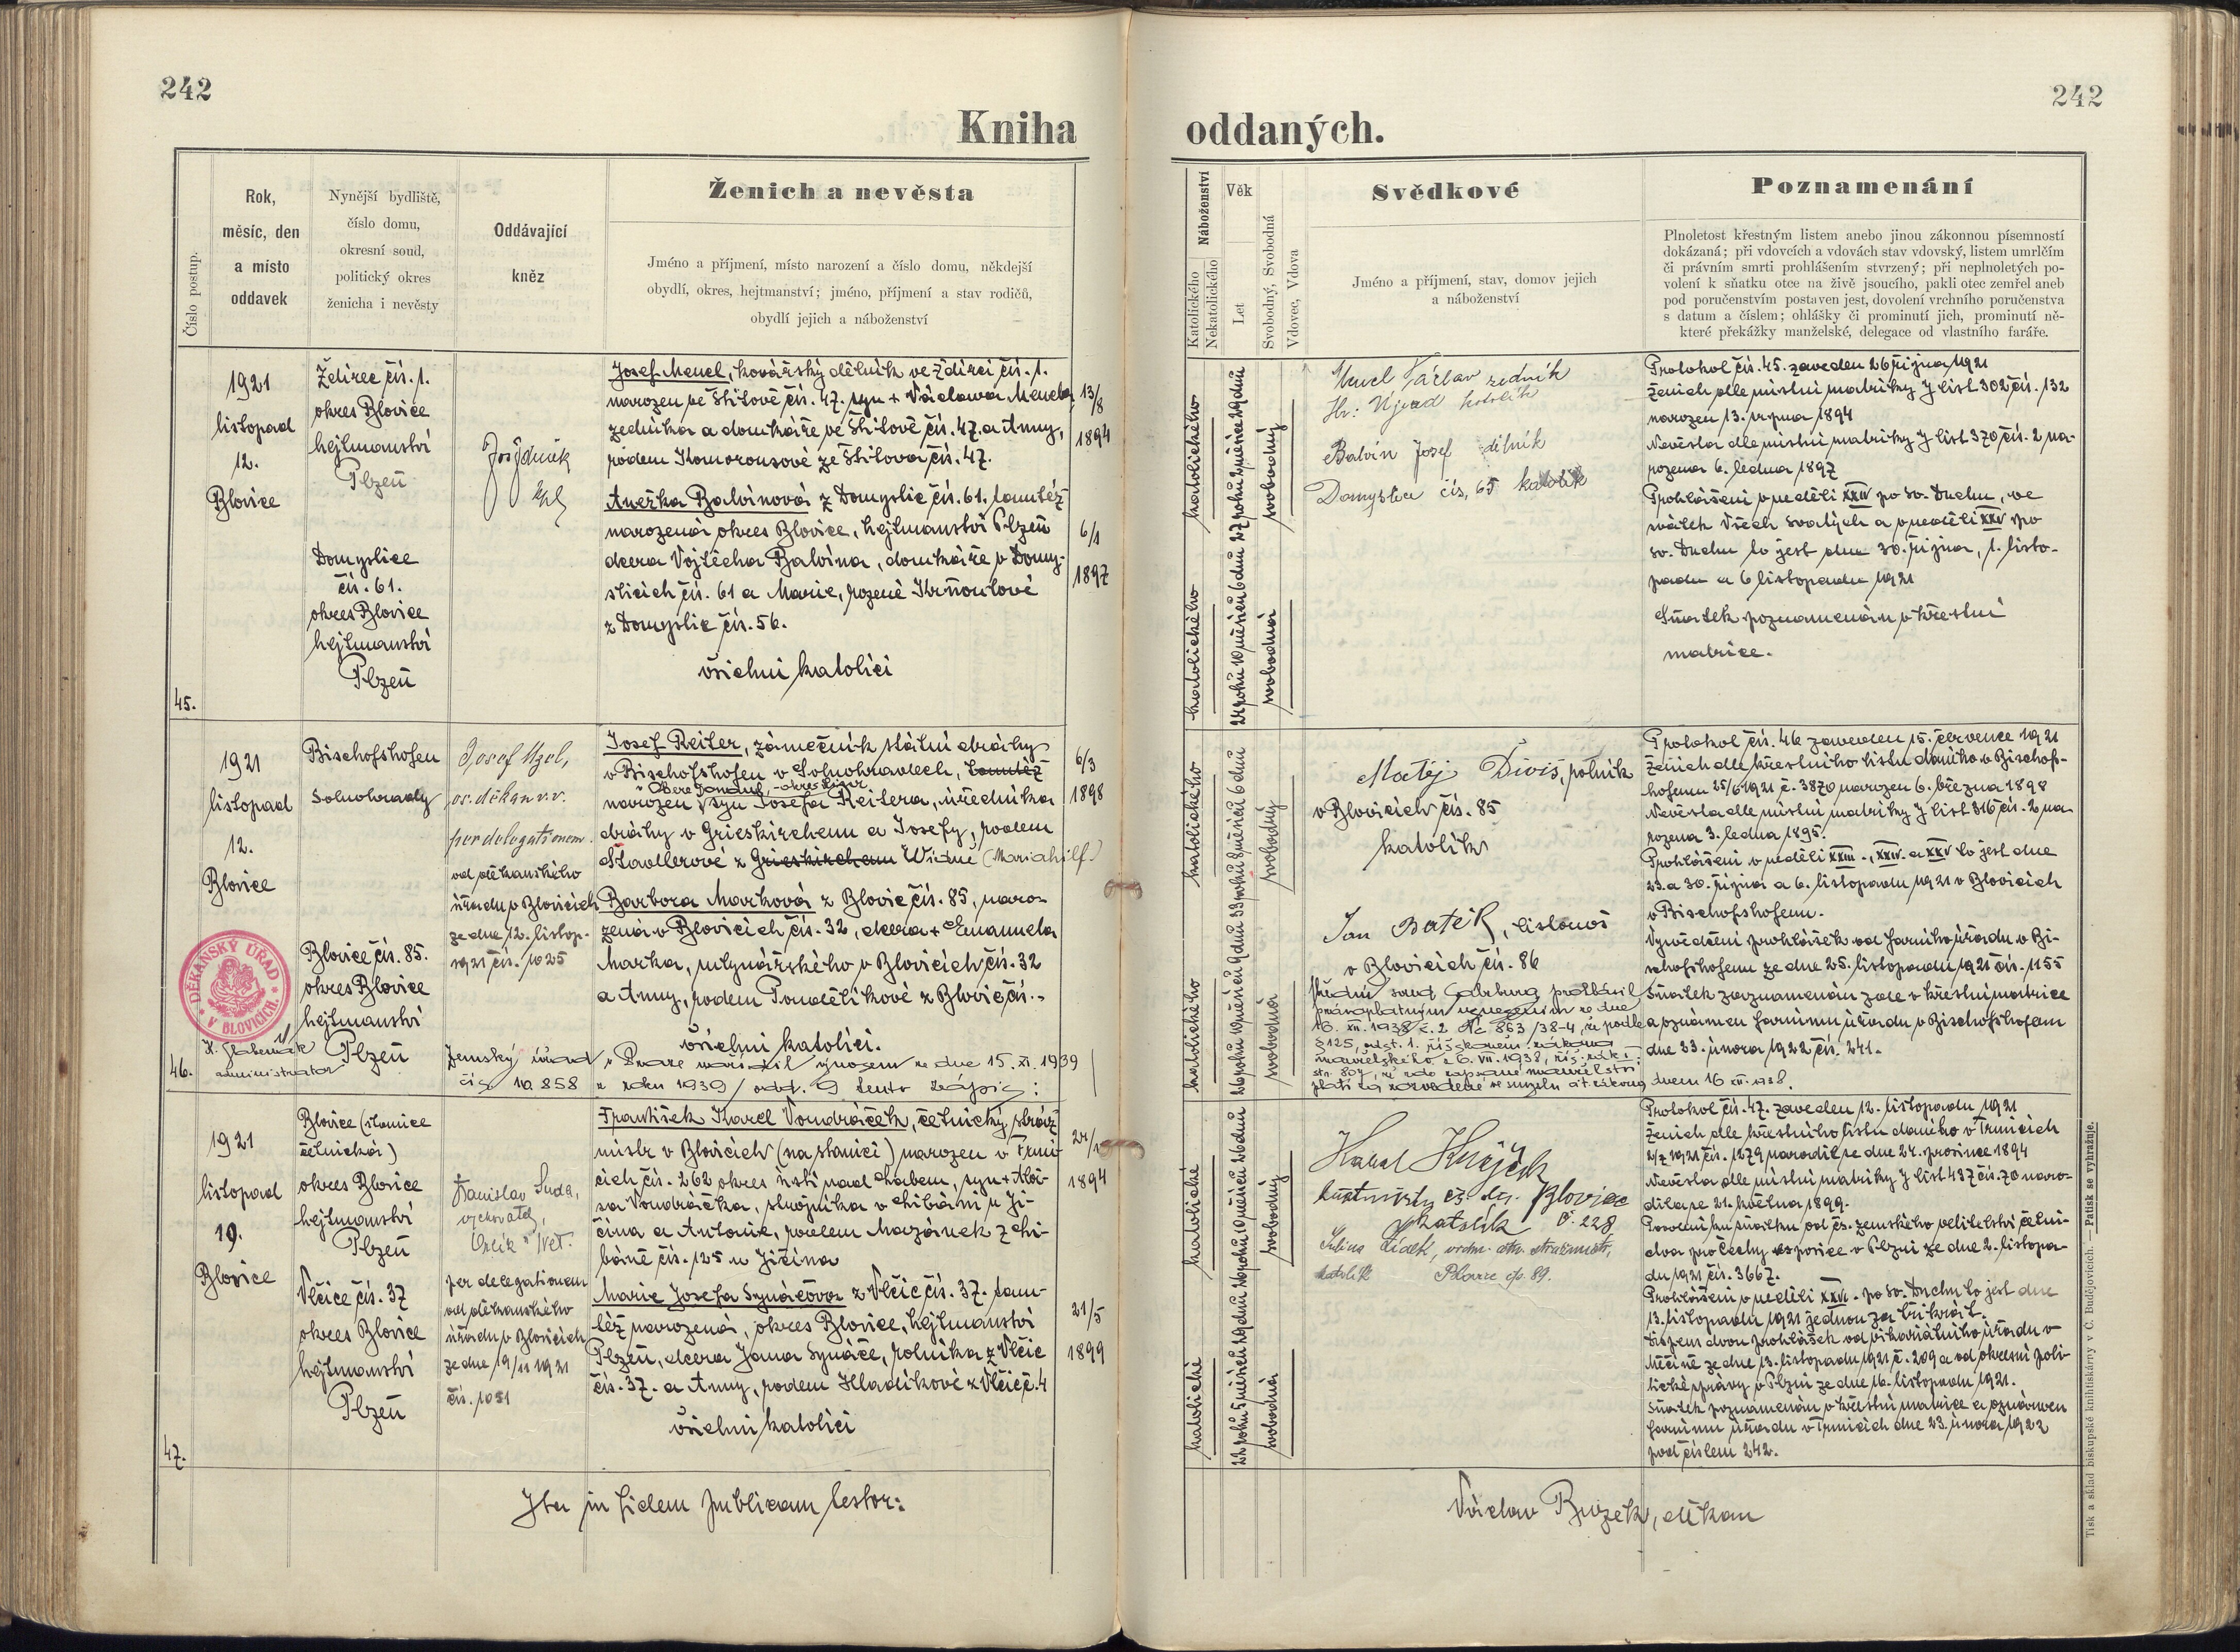 242
242
Kniha oddaných.
Číslo postup.
Rok,
měsíc, den
a místo
oddavek
Nynější bydliště,
číslo domu,
okresní soud,
politický okres
ženicha i nevěsty
Oddávající
kněz
Ženich a nevěsta
Jméno a příjmení, místo narození a číslo domu, někdejší
obydlí, okres, hejtmanství; jméno, příjmení a stav rodičů,
obydlí jejich a náboženství
Náboženství
Katolického
Nekatolického
Věk
Let
Svobodný, Svobodná
Vdovec, Vdova
Svědkové
Jméno a příjmení, stav, domov jejich
a náboženství
Poznamenání
Plnoletost křestným listem anebo jinou zákonnou písemností
dokázaná; při vdovcích a vdovách stav vdovský, listem umrlčím
či právním smrti prohlášením stvrzený; při neplnoletých po-
volení k sňatku otce na živě jsoucího, pakli otec zemřel aneb
pod poručenstvím postaven jest, dovolení vrchního poručenstva
s datum a číslem; ohlášky či prominutí jich, prominutí ně-
které překážky manželské, delegace od vlastního faráře.
45.
1921
listopad
12.
Blovice
Ždírec čís. 1.
okres Blovice
hejtmanství
Plzeň
Domyslice
čís. 61.
okres Blovice
hejtmanství
Plzeň
kpl
Josef Mencl, kovářský dělník ve Ždírci čís. 1.
narozen ve Štítově čís. 47. syn + Václava Mencla,
zedníka a domkáře ve Štítově čís. 47. a Anny,
rodem Komorousové ze Štítova čís. 47.
13/8
1894
Anežka Balvínová z Domyslic čís. 61. tamtéž
narozená okres Blovice, hejtmanství Plzeň
dcera Vojtěcha Balvína, domkáře v Domy-
slicích čís. 61 a Marie, rozené Krňoulové
z Domyslic čís. 56.
6/1
1897
všichni katolíci
katolického
27 roků 2 měsíce 29 dnů
svobodný
katolického
24 roků 10 měsíců 6 dnů
svobodná
Mencl Václav zedník
Balvín Josef dělník
Domyslice čís. 65 katolík
Protokol čís. 45. zaveden 26 října 1921
Ženich dle místní matriky J list 302 čís. 132
narozen 13. srpna 1894
Nevěsta dle místní matriky J list 370 čís. 2 na-
rozena 6. ledna 1897
Prohlášení v neděli XXIV po sv. Duchu, ve
svátek Všech Svatých a v neděli XXV po
sv. Duchu to jest dne 30. října, 1. listo-
padu a 6 listopadu 1921
Sňatek poznamenán v křestní
matrice.
46.
1921
listopad
12.
Blovice
DĚKANSKÝ ÚŘAD V BLOVICÍCH.
administrátor
Bischofshofen
Solnohrady
Blovice čís. 85.
okres Blovice
hejtmanství
Plzeň
Josef Uzel,
os. děkan v.v.
per delegationem
od děkanského
úřadu v Blovicích
ze dne 12. listop.
1921 čís. 1025
Josef Reiter, zámečník státní dráhy
v Bischofshofen v Solnohradech, tamtéž
narozen syn Josefa Reitera, úředníka
dráhy v Grieskirchenu a Josefy, rodem
Stadlerové z Grieskirchenu Vídně (Mariahilf.)
6/3
1898
Barbora Marková z Blovic čís. 85, naro-
zená v Blovicích čís. 32, dcera + Emanuela
Marka, mlynářského v Blovicích čís. 32
a Anny, rodem Pondělíkové z Blovic čís. -
všichni katolíci.
Zemský úřad v Praze nařídil výnosem ze dne 15. XI. 1939
čís. 10 858 z roku 1939 odd. 9 tento zápis:
katolického
23 roků 8 měsíců 6 dnů
svobodný
katolického
26 roků 10 měsíců 9 dnů
svobodná
Matěj Diviš, rolník
v Blovicích čís. 85
katolík
Jan Baték, listonoš
v Blovicích čís. 86
Úřední soud Salzburg prohlásil
pravoplatným usnesením ze dne
16. XII. 1938 č. 2 Nc 863/38-4, že podle
§ 125, odst. 1. říšského zákona
manželského z 6. VII. 1938, říš. zák. I
str. 807, že zde zapsané manželství
platí za rozvedené ve smyslu cit. zákona dnem 16 XII. 1938.
Protokol čís. 46 zaveden 15. července 1921
Ženich dle křestního listu daného v Bischof-
hofenu 25/6 1921 č. 3870 narozen 6. března 1898
Nevěsta dle místní matriky J list 316 čís. 2 na-
rozena 3. ledna 1895.
Prohlášení v neděli XXIII., XXIV. a XXV to jest dne
23. a 30. října a 6. listopadu 1921 v Blovicích
v Bischofshofenu.
Vysvědčení prohlášek od farního úřadu v Bi-
schofshofenu ze dne 25. listopadu 1921 čís. 1155
Sňatek zaznamenán zde v křestní matrice
a oznámen farnímu úřadu v Bischofshofenu
dne 23. února 1922 čís. 241.
47.
1921
listopad
19.
Blovice
Blovice (stanice
četnická)
okres Blovice
hejtmanství
Plzeň
Vlčice čís. 37
okres Blovice
hejtmanství
Plzeň
Stanislav Suda,
vychovatel,
per delegationem
od děkanského
úřadu v Blovicích
ze dne 19/11 1921
čís. 1051
František Karel Vondráček, četnický stráž-
mistr v Blovicích (na stanici) narozen v Trmi-
cích čís. 262 okres Ústí nad Labem, syn + Aloi-
sa Vondráčka, strojníka v Libáni u Ji-
čína a Antonie, rodem Mazánek z Li-
báně čís. 125 u Jičína
1894
Marie Josefa Synáčová z Vlčic čís. 37. tam-
též narozená, okres Blovice, hejtmanství
Plzeň, dcera Jana Synáče, rolníka z Vlčic
čís. 37. a Anny, rodem Hladíkové z Vlčic č. 4
21/5
1899
všichni katolíci
katolické
26 roků 10 měsíců 26 dnů
svobodný
katolické
22 roků 5 měsíců 29 dnů
svobodná
Blovice
katolík č. 228
Židek, vrchn. strážmistr,
katolík Blovice čp. 89.
Protokol čís. 47. zaveden 12. listopadu 1921
Ženich dle křestního listu daného v Trmicích
2/7 1921 čís. 1279 narodil se dne 24. prosince 1894
Nevěsta dle místní matriky J list 437 čís. 70 naro-
dila se 21. května 1899.
Povolení ku sňatku od čs. zemského velitelství četni-
ctva pro Čechy v Plzni ze dne 2. listopa-
du 1921 čís. 3667.
Prohlášení v neděli XXVI. po sv. Duchu to jest dne
13. listopadu 1921 jednou za třikrát.
dvou prohlášek od vikariátního úřadu v
Měčíně ze dne 13. listopadu 1921 č. 209 a od okresní poli-
tické správy v Plzni ze dne 16. listopadu 1921.
Sňatek poznamenán v křestní matrice a oznámen
farnímu úřadu v Trmicích dne 23. února 1922
pod číslem 242.
Ita in fidem publicam testor:
Václav Buzek, děkan
Tisk a sklad biskupské knihtiskárny v Č. Budějovicích. — Patisk se vyhražuje.